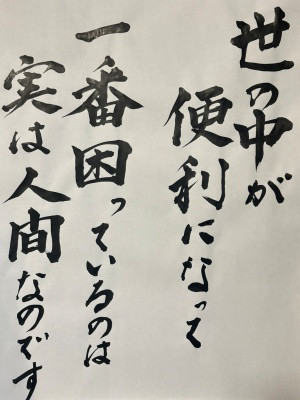 世の中が
便利になって
一番困っているのは
実は人間なのです